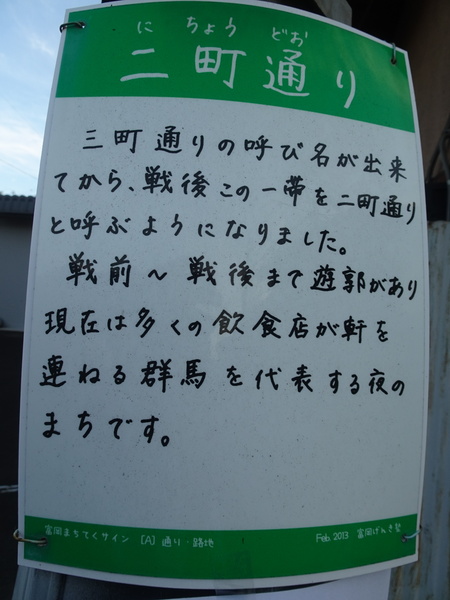 に ちょう どお
二町通り
三町通りの呼び名が出来
てから、戦後この一帯を二町通り
と呼ぶようになりました。
戦前～戦後まで遊郭があり
現在は多くの飲食店が軒を
連ねる群馬を代表する夜の
まちです。
富岡まちてくサイン [A] 通り・路地 Feb. 2013 富岡げんき塾